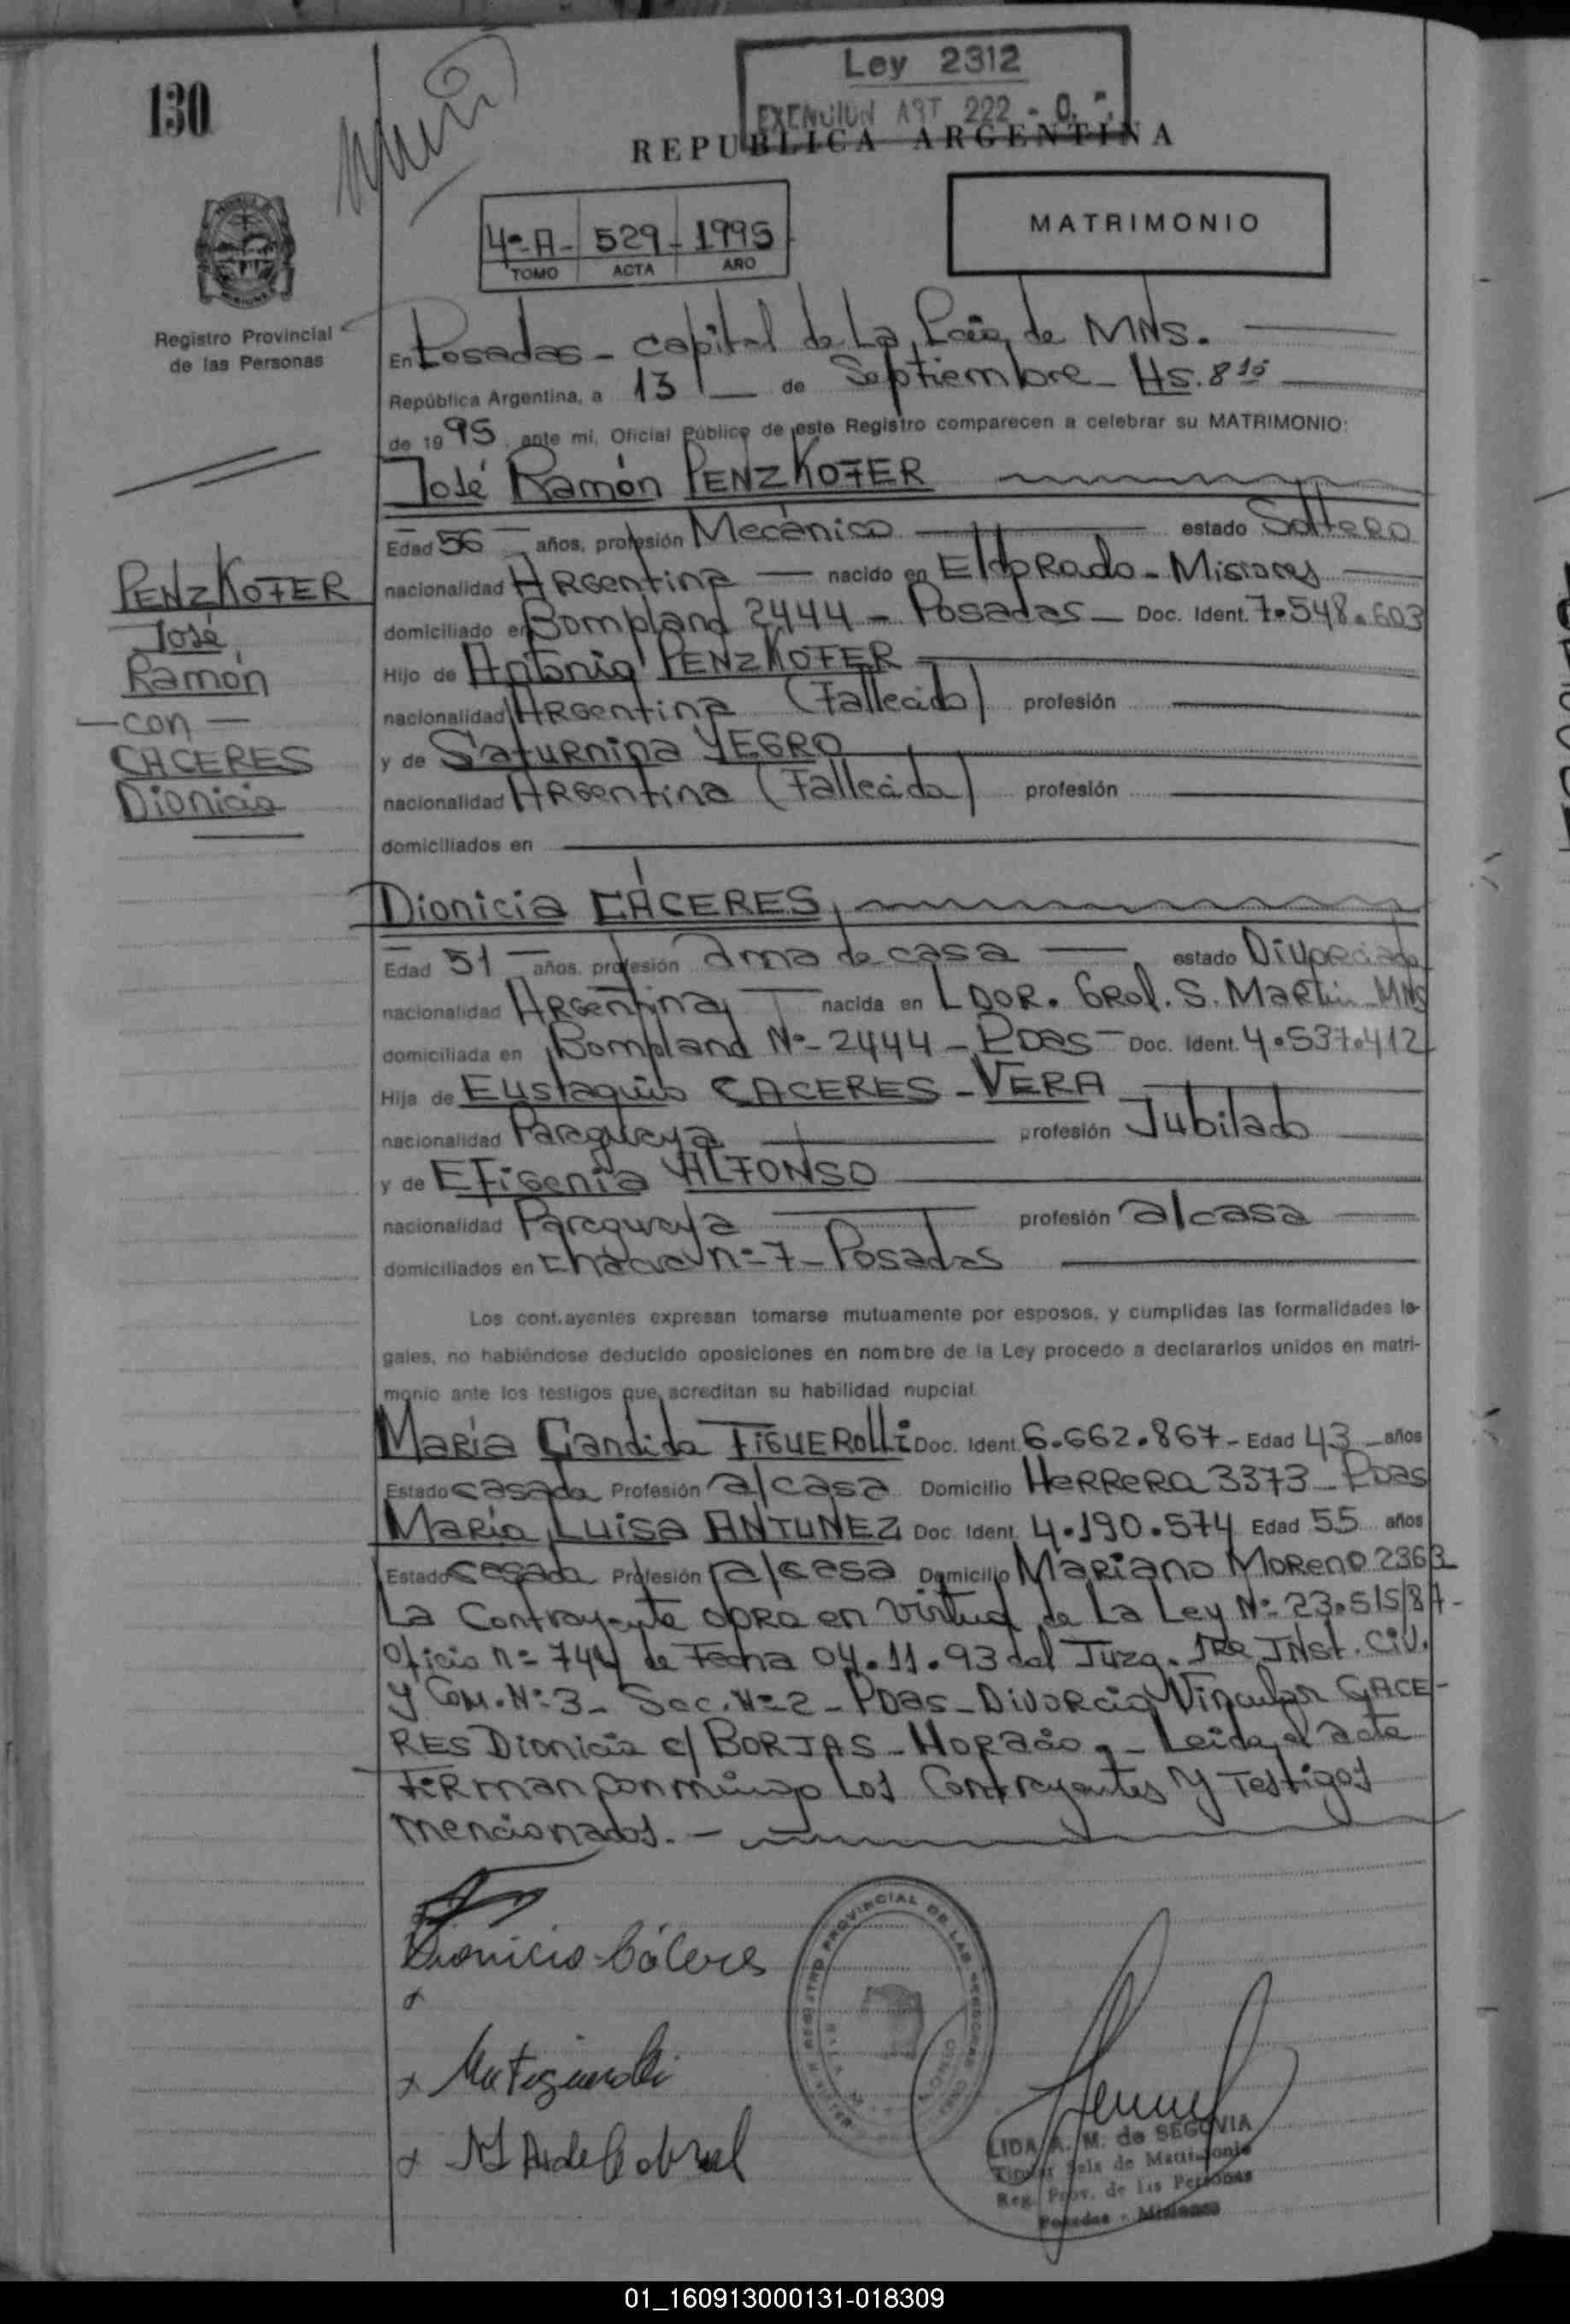 130
Ley 2312
EXENCION ART 222 - 0.
REPUBLICA ARGENTINA
4º-A- 529- 1995
TOMO ACTA AÑO
MATRIMONIO
Registro Provincial
de las Personas
En Posadas - capital de La Pcia, de MNS.
República Argentina, a 13 de Septiembre - Hs. 8 15
de 1995, ante mí, Oficial Público de este Registro comparecen a celebrar su MATRIMONIO:
José Ramón PENZKOFER
Edad 56 años, profesión Mecánico estado Soltero
nacionalidad Argentina nacido en Eldorado - Misiones
domiciliado en Bompland 2444 - Posadas - Doc. Ident. 7.548.603
Hijo de Antonio PENZKOFER
nacionalidad Argentina (Fallecido) profesión
y de Saturnina YEGRO
nacionalidad Argentina (Fallecida) profesión
domiciliados en
PENZKOFER
José
Ramón
- con -
CACERES
Dionicia
Dionicia CÁCERES
Edad 51 años, profesión ama de casa estado Divorciada
nacionalidad Argentina nacida en LDOR. GRal. S. Martín - MNS
domiciliada en Bompland Nº - 2444 - PDas - Doc. Ident. 4.537.412
Hija de Eustaquio CACERES - VERA
nacionalidad Paraguaya profesión Jubilado
y de EFigenia ALFONSO
nacionalidad Paraguaya profesión a/casa
domiciliados en Chacra nº 7 - Posadas
Los contrayentes expresan tomarse mutuamente por esposos, y cumplidas las formalidades le-
gales, no habiéndose deducido oposiciones en nombre de la Ley procedo a declararlos unidos en matri-
monio ante los testigos que acreditan su habilidad nupcial
María Candida FIGUEROLLI Doc. Ident. 6.662.867 - Edad 43 años
Estado casada Profesión a/casa Domicilio HERRERA 3373 - PDas
María Luisa ANTUNEZ Doc. Ident. 4.190.574 Edad 55 años
Estado casada Profesión a/casa Domicilio Mariano Moreno 2363
La Contrayente obra en virtud de La Ley Nº 23.515/87 -
Oficio nº 744 de Fecha 04.11.93 del Juzg. 1Ra INst. Civ.
y Com. Nº 3 - Sec. Nº 2 - PDas - Divorcio Vincular CACE-
RES Dionicia c/ BORJAS - Horacio. - Leida el acta
firman conmigo Los Contrayentes y Testigos
mencionados. -
Dionicia Cáceres
REGISTRO PROVINCIAL DE LAS PERSONAS
LIDA A. M. de SEGOVIA
Titular Sala de Matrimonio
Reg. Prov. de las Personas
Posadas - Misiones
01_160913000131-018309